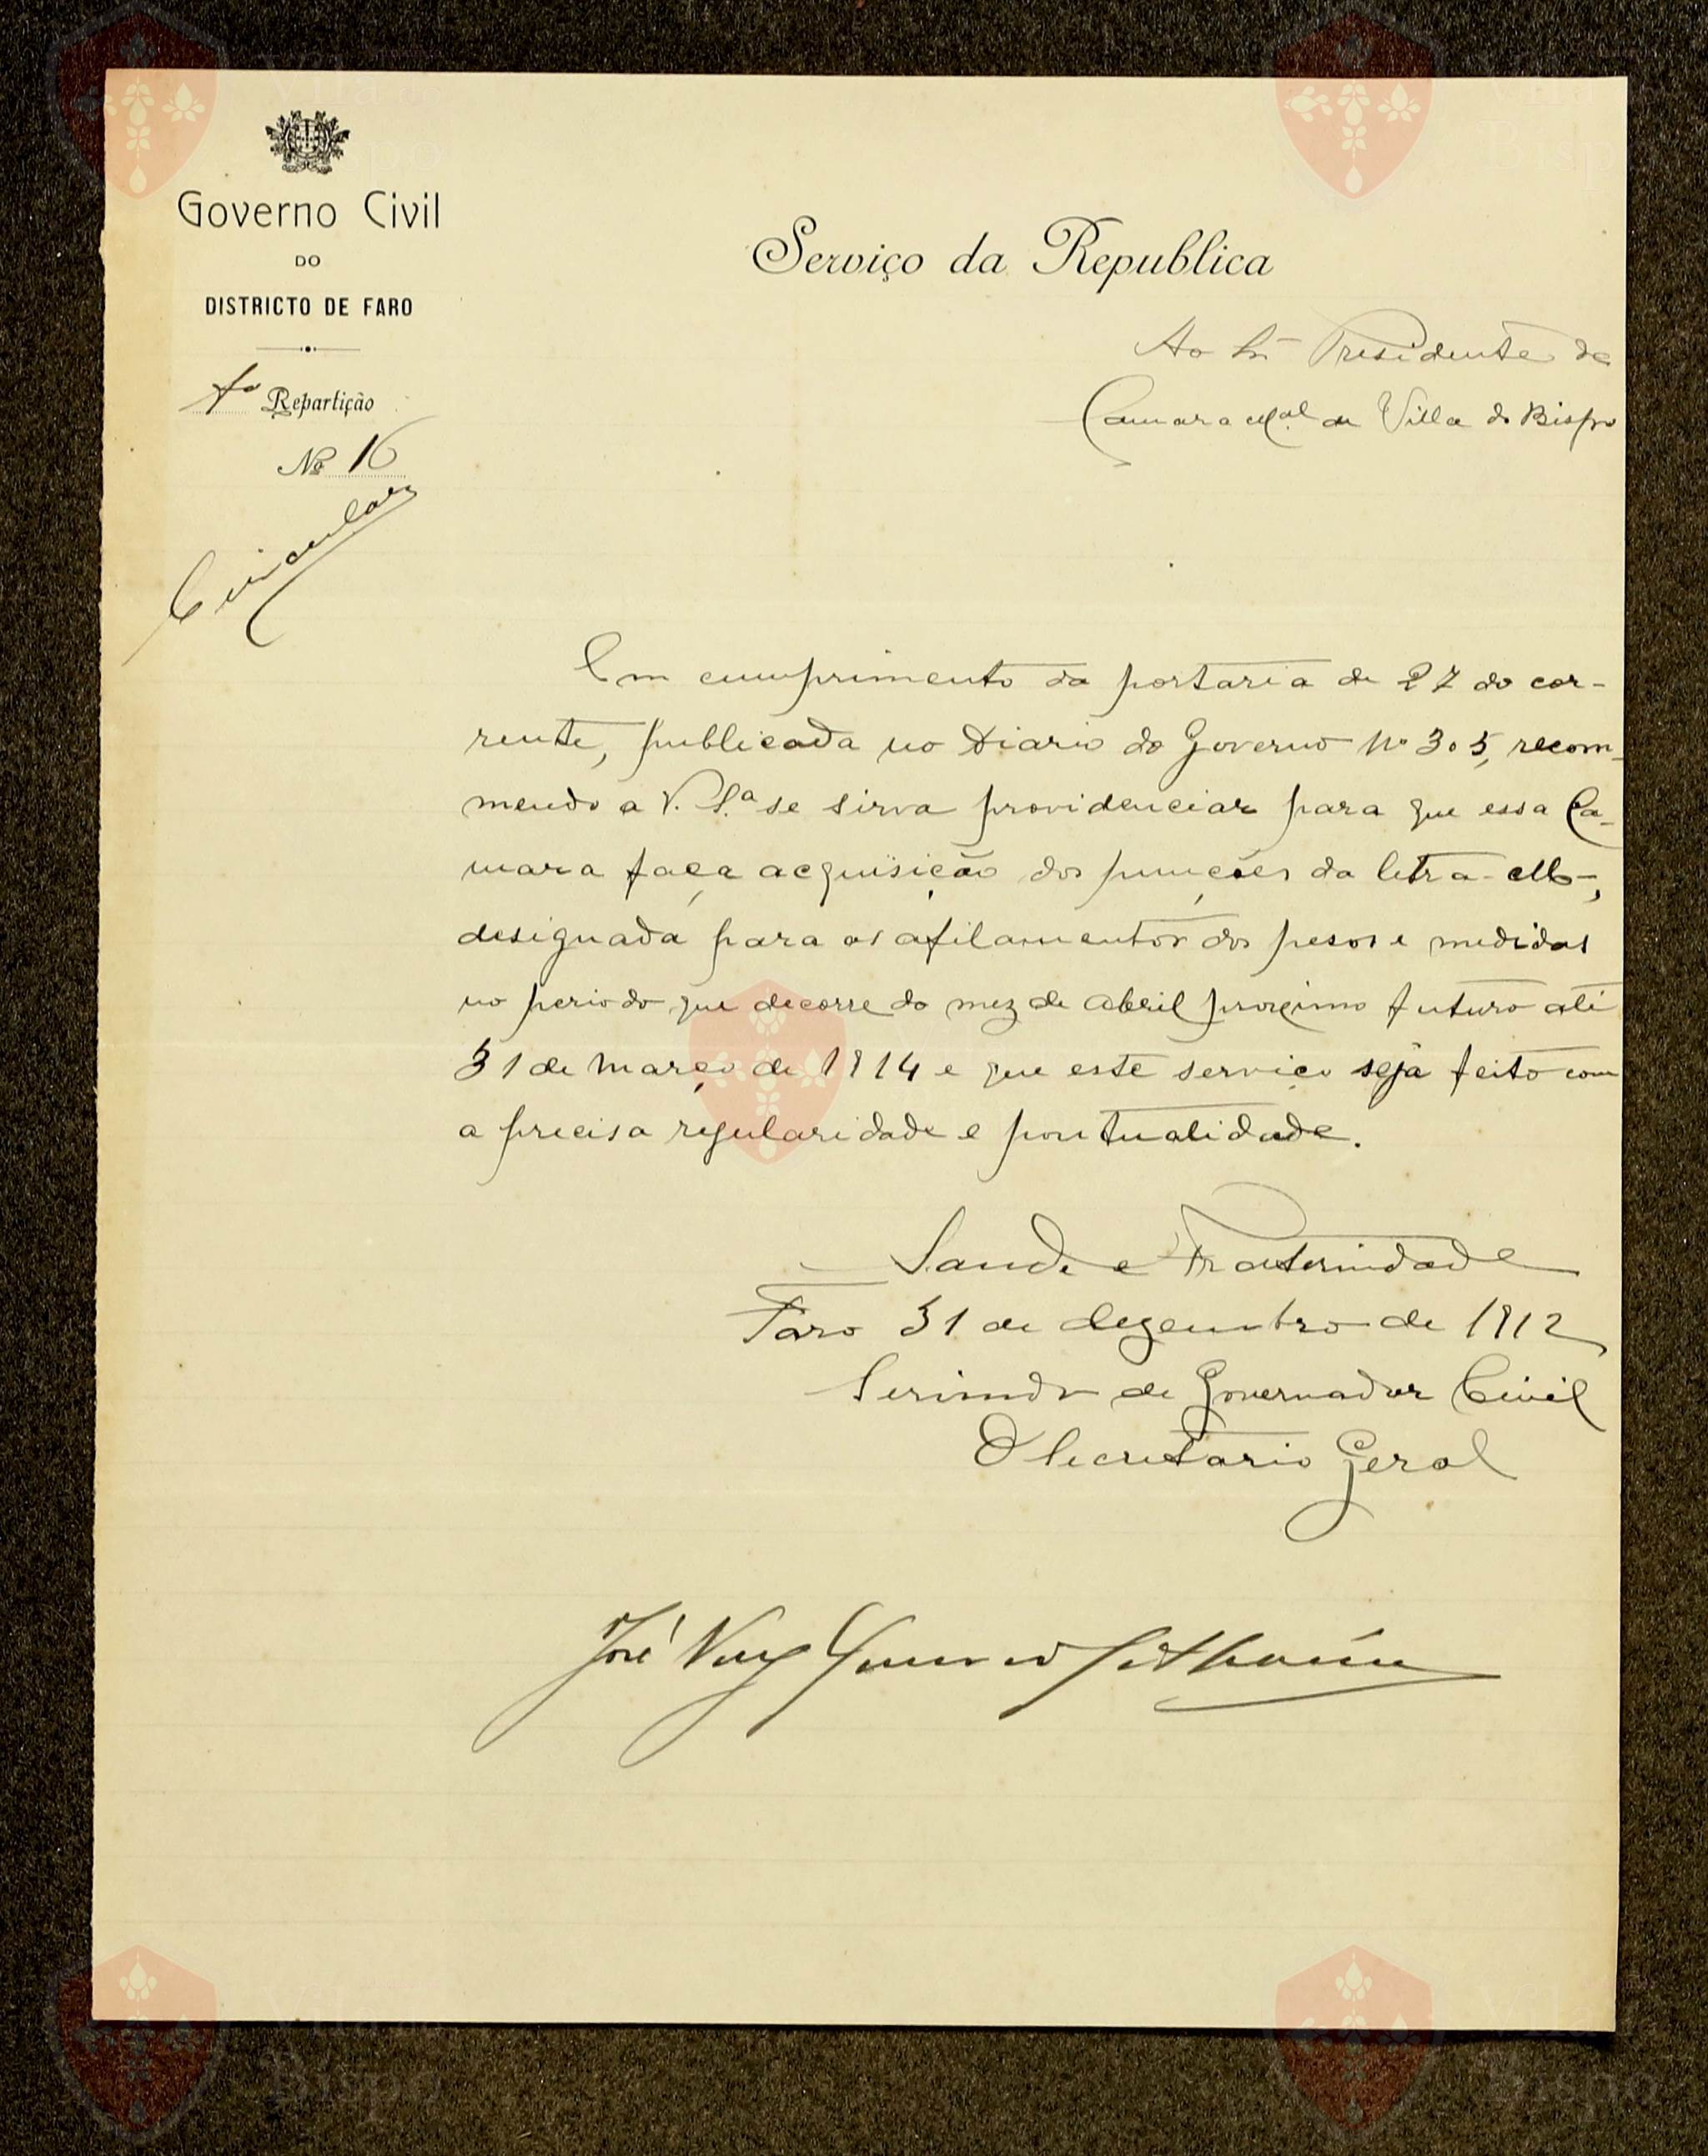 Governo Civil
DO
DISTRICTO DE FARO
Repartição
Nº 16
Circular
Serviço da Republica
Ao Sr. Presidente da
Camara Mal de Villa do Bispo
Em cumprimento da portaria de 27 do cor-
rente, publicada no Diario do Governo Nº 305, recom-
mendo a V. S.ª se sirva providenciar para que essa Ca-
mara faça acquisição dos punções da letra - M -,
designada para os afilamentos dos pesos e medidas
no periodo que decorre do mez de abril proximo futuro até
31 de março de 1914 e que este serviço seja feito com
a precisa regularidade e pontualidade.
Saude e Fraternidade
Faro 31 de dezembro de 1912
Servindo de Governador Civil
O Secretario Geral
José
Vila do
Bispo